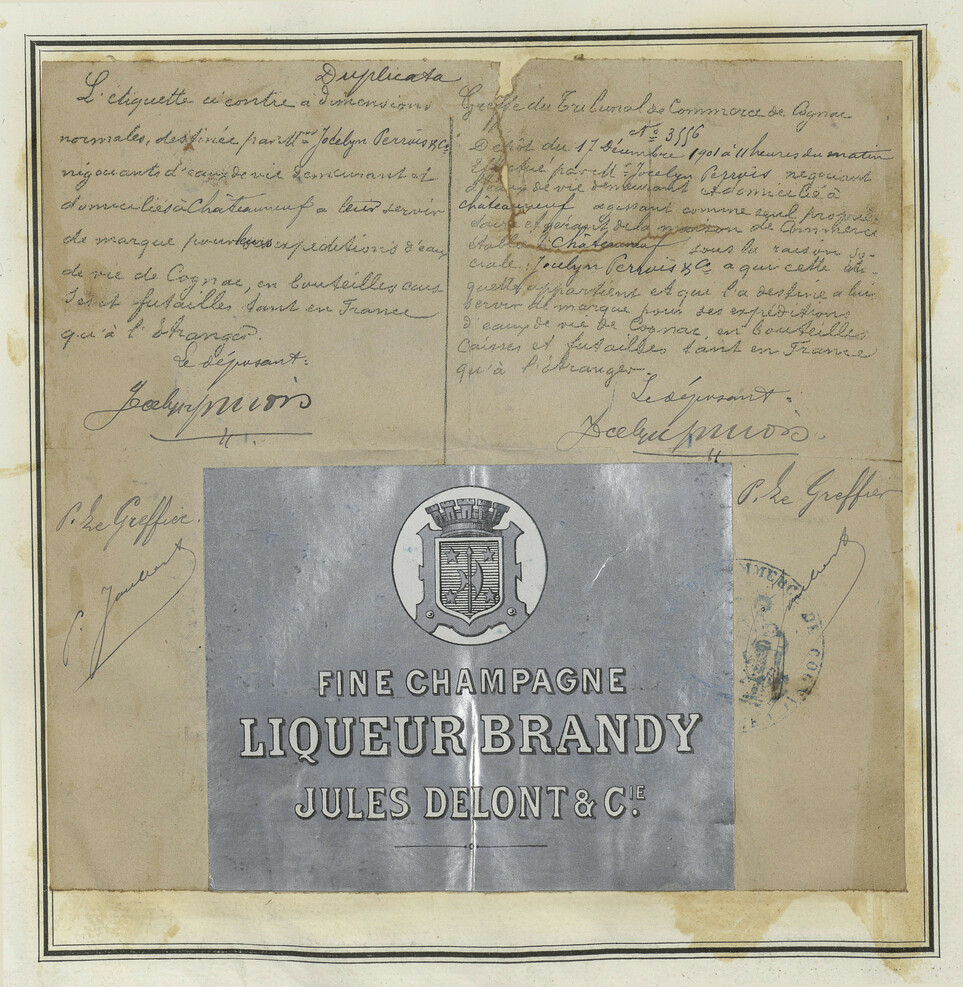 Duplicata
L'étiquette ci contre à dimensions
normales, destinée par Mrs Jocelyn Perrois & Co
négociants d'eaux de vie demeurant et
domiciliés à Châteauneuf a leur servir
de marque pour leurs expéditions d'eaux
de vie de Cognac, en bouteilles cais
ses et futailles tant en France
qu'à l'étranger.
Le déposant:
P. Le Greffier.
Greffe du Tribunal de Commerce de Cognac
No 3556
Dépôt du 17 Décembre 1901 à 11 heures du matin
Effectué par Mr Jocelyn Perrois négociant
d'eaux de vie demeurant et domicilié à
Châteauneuf agissant comme seul proprié-
taire et gérant de la maison de Commerce
établie à Châteauneuf sous la raison so-
ciale: Jocelyn Perrois & Co a qui cette éti-
quette appartient et que l'a destiné a lui
servir de marque pour ses expéditions
d'eaux de vie de Cognac, en bouteilles
Caisses et futailles tant en France
qu'à l'étranger.
Le déposant:
P. Le Greffier
FINE CHAMPAGNE
LIQUEUR BRANDY
JULES DELONT & CIE.